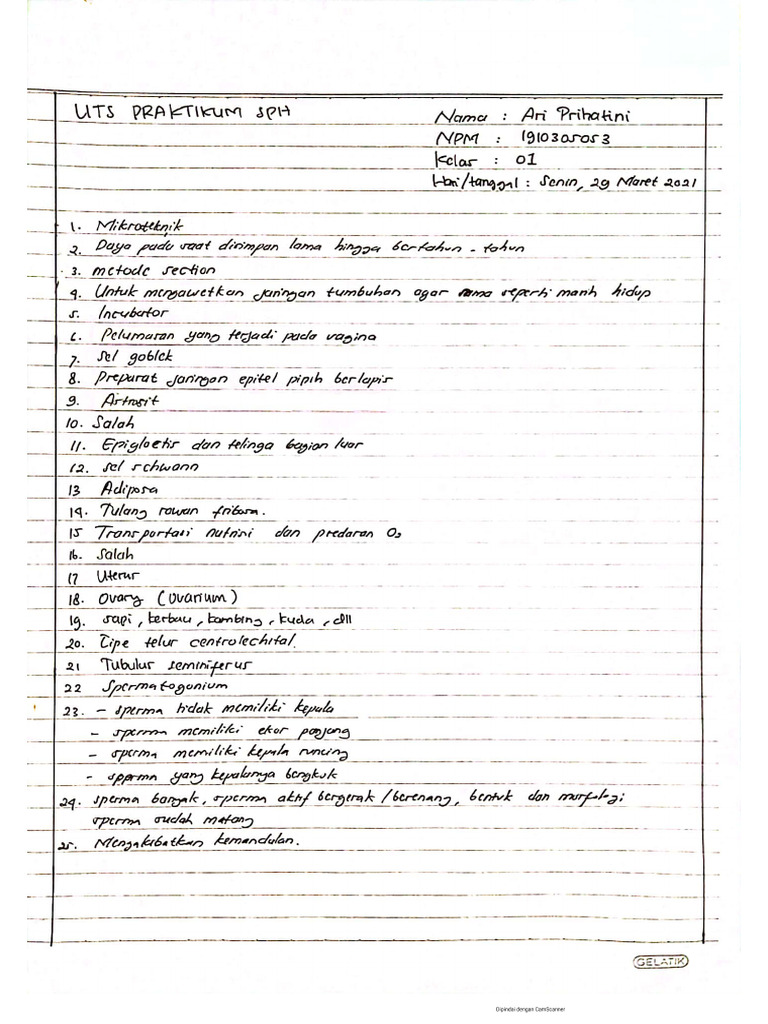 UTS PRAKTIKUM SPH
Nama : Ari Prihatini
NPM : 1910305053
Kelas : 01
Hari/tanggal : Senin, 29 Maret 2021
1. Mikroteknik
2. Daya pada saat disimpan lama hingga bertahun - tahun
3. metode section
4. Untuk mengawetkan jaringan tumbuhan agar sama seperti masih hidup
5. Incubator
6. Pelumasan yang terjadi pada vagina
7. Sel goblek
8. Preparat jaringan epitel pipih berlapis
9. Artrosit
10. Salah
11. Epigloetis dan telinga bagian luar
12. sel schwann
13 Adiposa
14. Tulang rawan fribosa.
15 Transportasi nutrisi dan predaran O₂
16. Salah
17 Uterus
18. Ovary (Ovarium)
19. sapi, kerbau, kambing, kuda, dll
20. Tipe telur centrolechital.
21 Tubulus seminiferus
22 Spermatogonium
23. - sperma tidak memiliki kepala
- sperma memiliki ekor panjang
- sperma memiliki kepala runcing
- sperma yang kepalanya bengkok
24. sperma banyak, sperma aktif bergerak /berenang, bentuk dan morfologi
sperma sudah matang
25. Mengakibatkan kemandulan.
GELATIK
Dipindai dengan CamScanner